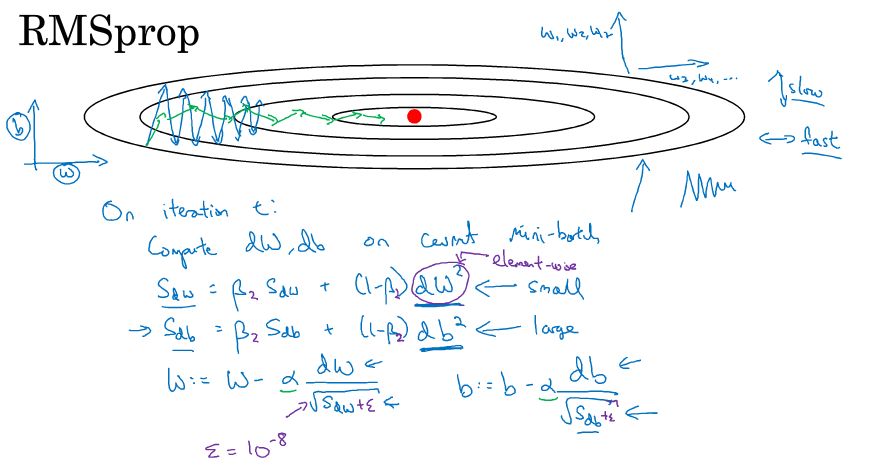 RMSprop
w₁, w₂, w₂
w₃, w₄, ...
slow
fast
b
w
On iteration t:
Compute dW, db on current mini-batch
element-wise
S_dw = β₂ S_dw + (1-β₂) dW² ← small
→ S_db = β₂ S_db + (1-β₂) db² ← large
W := W - α dW/√(S_dw+ε) ←
b := b - α db/√(S_db+ε) ←
ε = 10⁻⁸